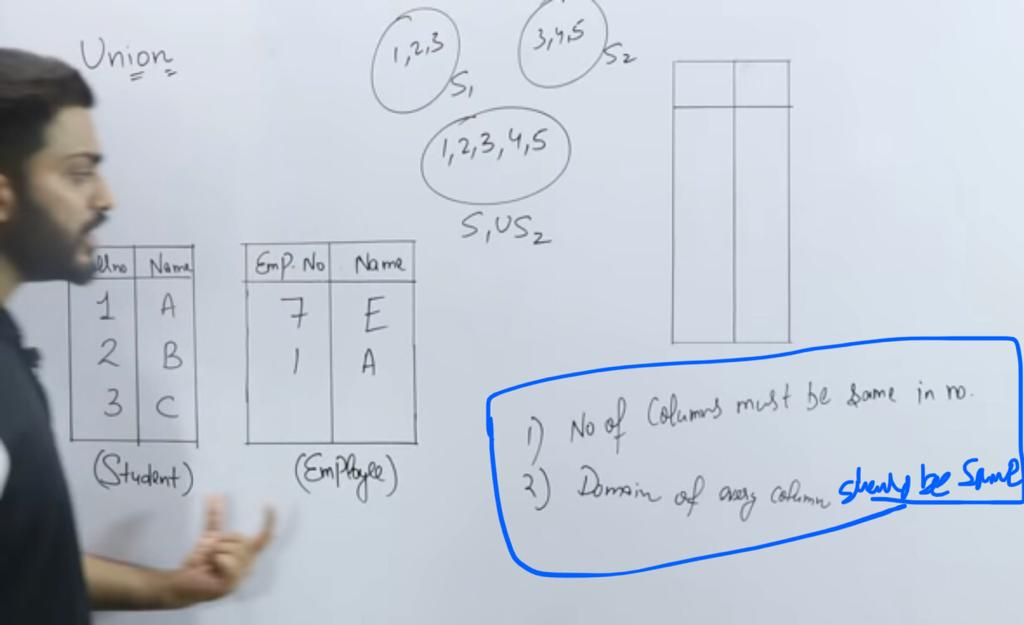 Union
1,2,3
S1
3,4,5
S2
1,2,3,4,5
S1US2
Name
1 A
2 B
3 C
(Student)
Emp. No Name
7 E
1 A
(Employee)
1) No of Columns must be same in no.
2) Domain of every column should be Same